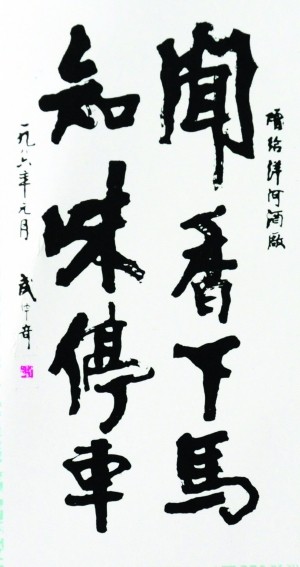 贈给洋河酒廠
聞香下馬
知味停車
一九八六年元月
武中奇